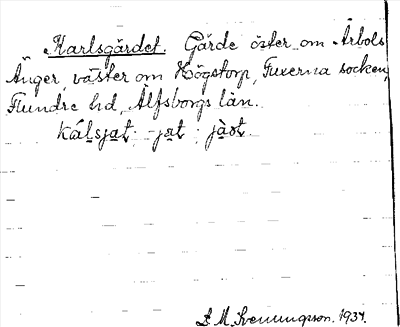 Karlsgärdet. Gärde öster om Årbols
Änger, väster om Högstorp, Fuxerna socken,
Flundre hd, Älfsborgs län.
kálsjat: -jat : jàst.
L. M. Svenungsson. 1934.